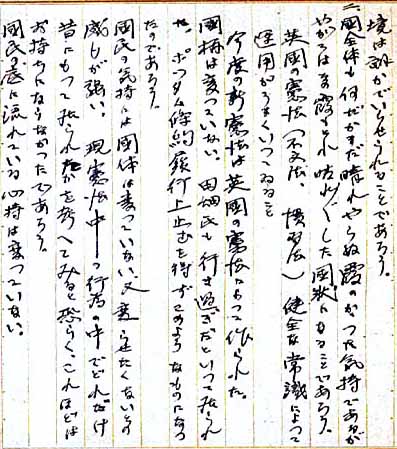 境は静かでいらせられることであろう。
二、国全体も何ぜかまだ晴れやらぬ霞のかかつた気持であるが
霞もとれ した国状になることであろう。
英国の憲法(不文法、慣習法)健全な常識によつて
運用がうまくいつてゐること
今度の新憲法は英国の憲法によつて作られた。
国柄は変つていない。田畑氏も行き過ぎだといつておられ
た。ポツダム條約履行上止むを得ずこのようなものになつ
たのであろう。
国民の気持には国体は変つていない、又変らせたくないとの
感じが強い。現憲法中の行為の中でどれだけ
昔にもつておられたかを考へてみると恐らく、これほどは
お持ちにならなかつたであろう。
国民の底に流れている心持は変つていない。